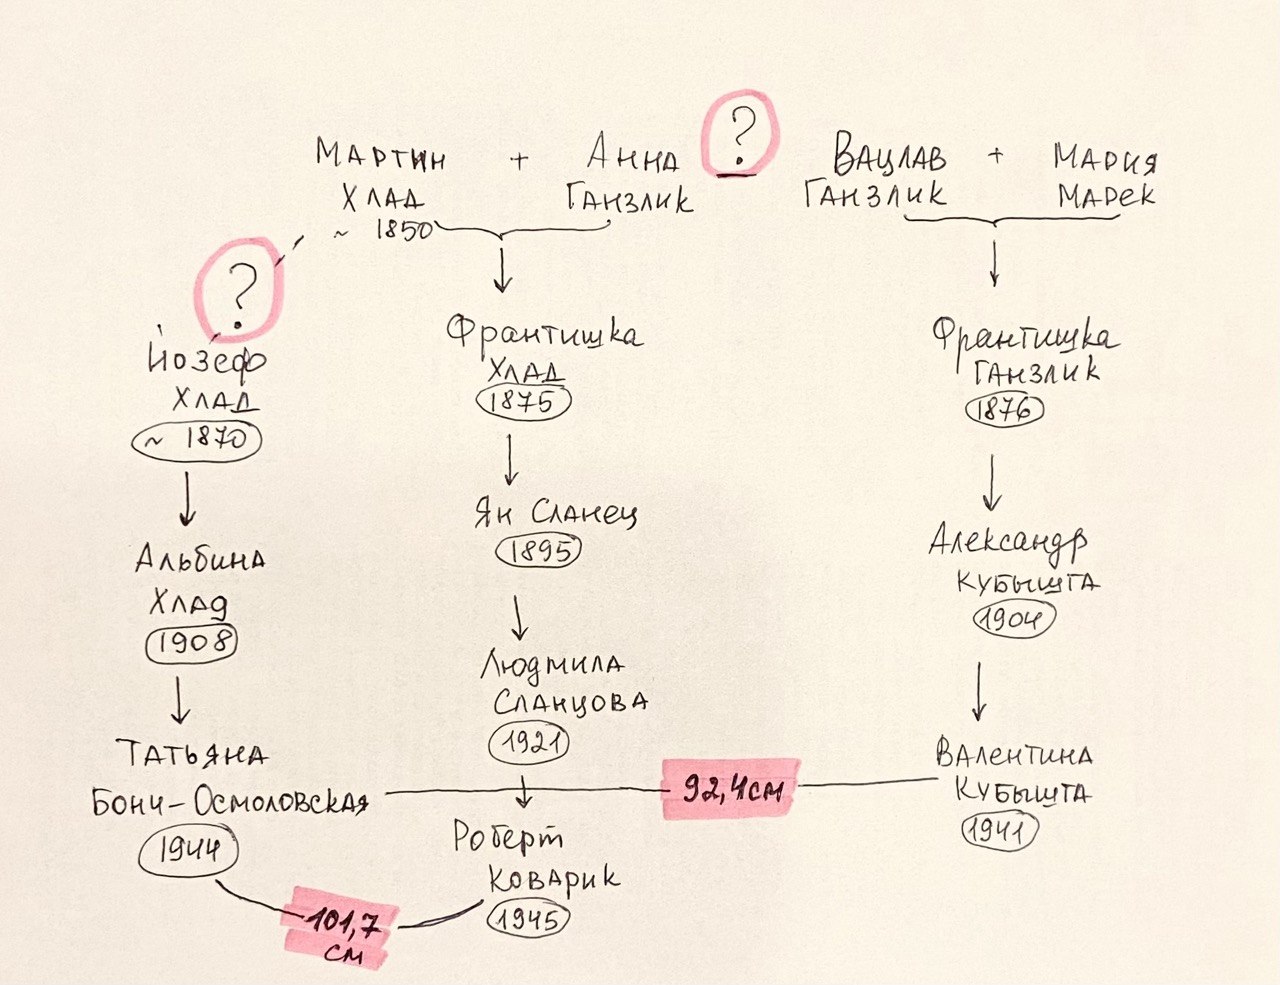 ?
МАРТИН + АННА ВАЦЛАВ + МАРИЯ
ХЛАД ГАНЗЛИК ГАНЗЛИК МАРЕК
~ 1850
?
Йозеф Франтишка Франтишка
ХЛАД ХЛАД ГАНЗЛИК
~ 1870 1875 1876
Ян Сланец
1895
Альбина Александр
ХЛАД Кубышта
1908 1904
Людмила
Сланцова
1921
Татьяна Валентина
Бонч-Осмоловская 92,4см Кубышта
1944 1941
Роберт
Коварик
1945
101,7
см